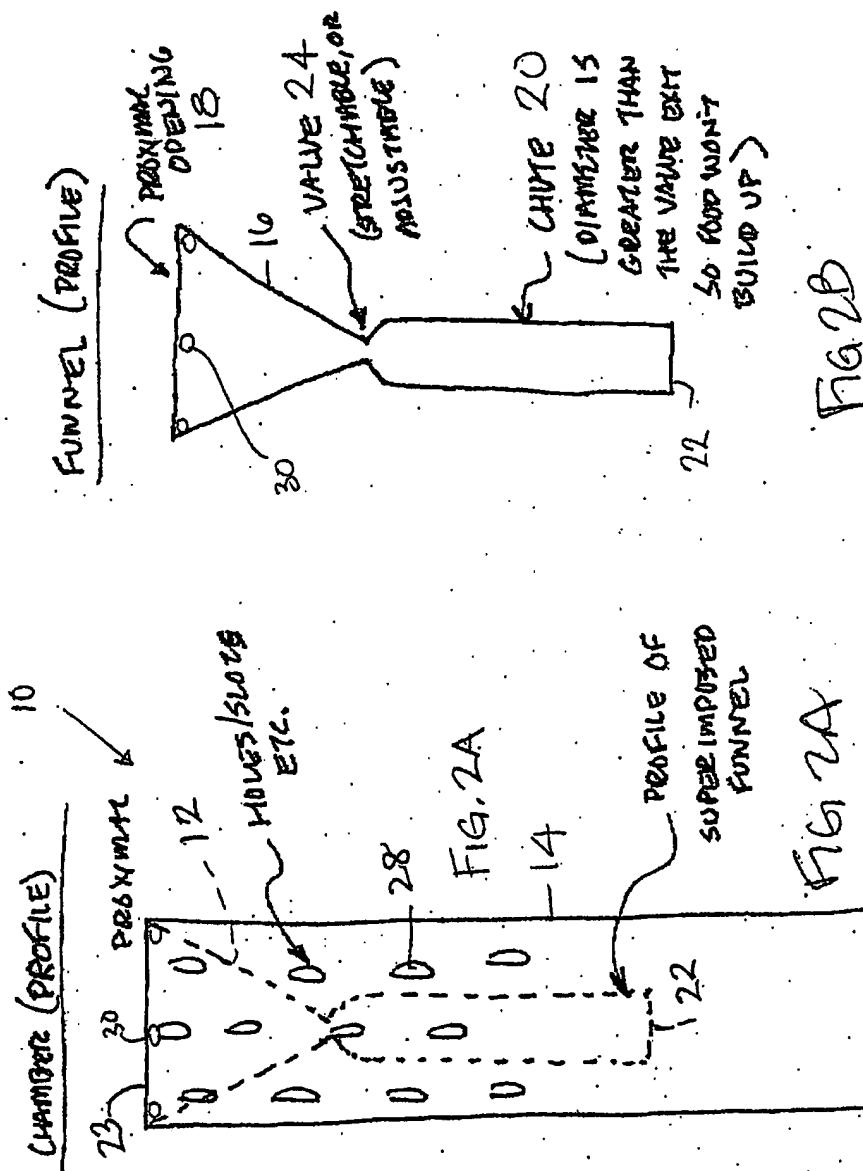 CHAMBER (PROFILE)
10
23
30
PROXIMAL
12
HOLES/SLOTS
ETC.
28
FIG. 2A
14
PROFILE OF
SUPERIMPOSED
FUNNEL
22
FIG 2A
FUNNEL (PROFILE)
PROXIMAL
OPENING
18
30
16
VALVE 24
(STRETCHABLE, OR
ADJUSTABLE)
CHUTE 20
(DIAMETER IS
GREATER THAN
THE VALVE EXIT
SO FOOD WON'T
BUILD UP)
22
FIG 2B